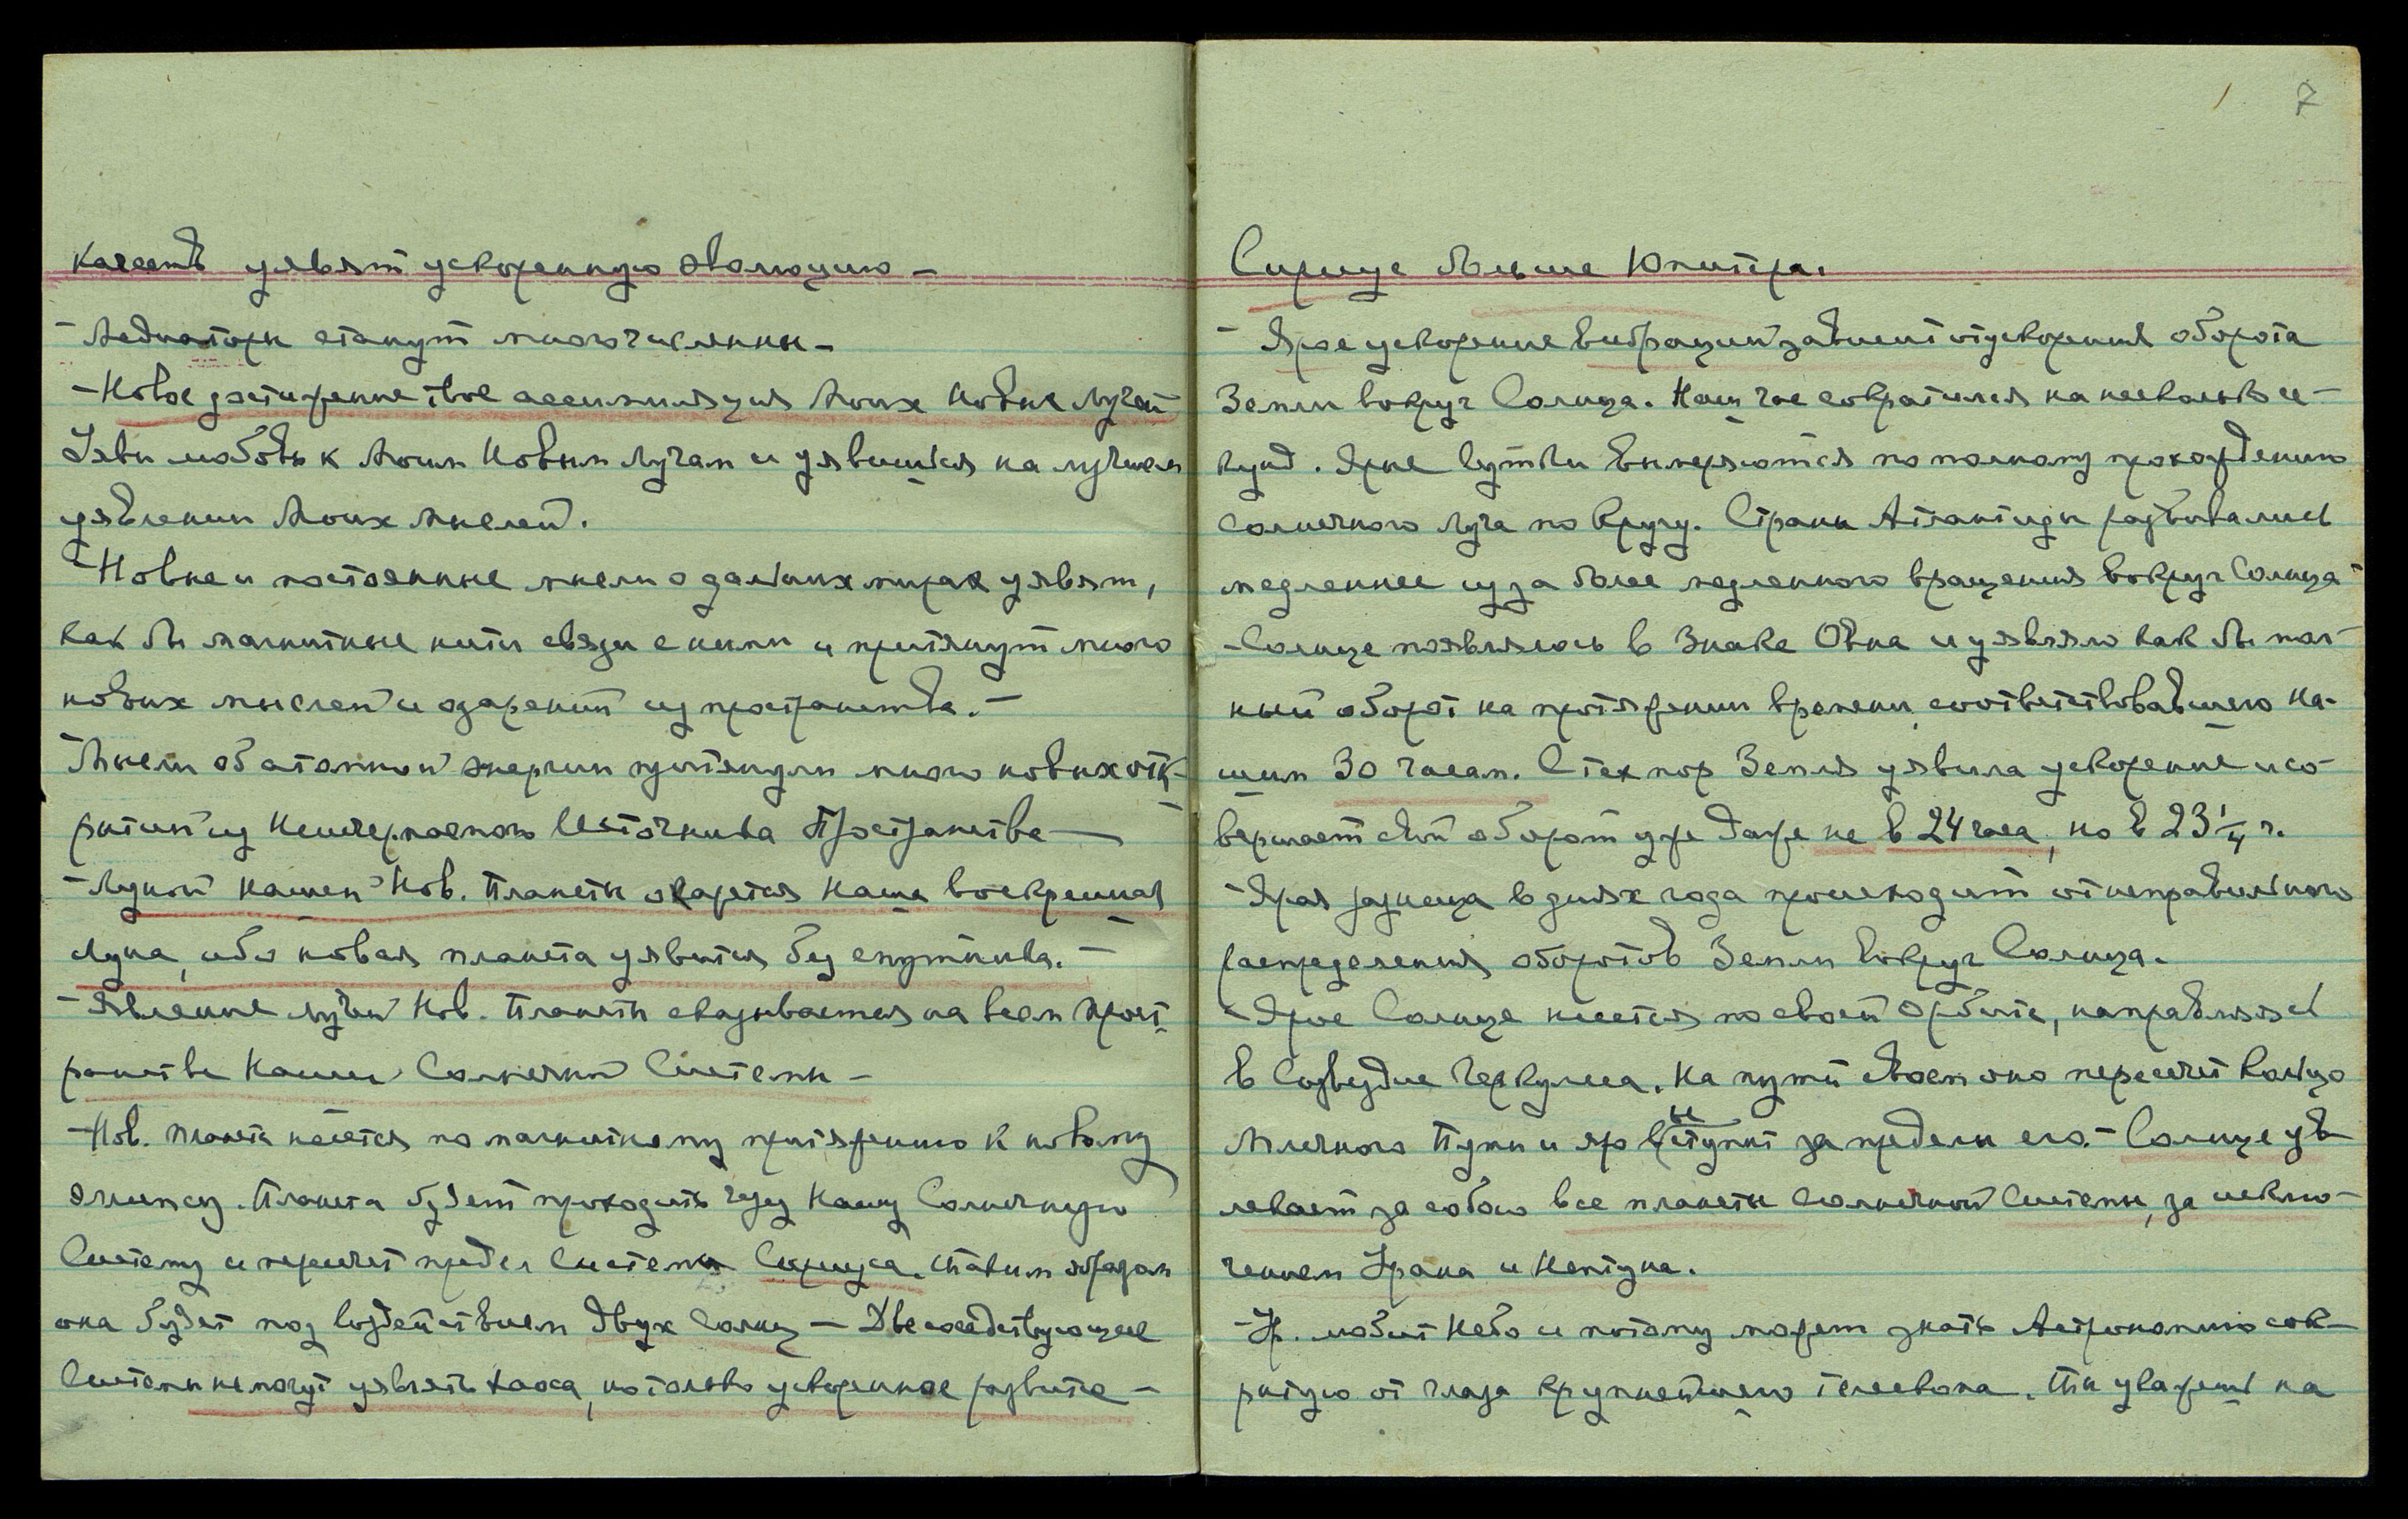 качеств уявят ускоренную эволюцию –
– Медиаторы станут многочисленны –
– Новое достижение твое ассимиляция Моих Новых Лучей
Уяви любовь к Моим Новым Лучам и уявишься на лучшем
уявлении Моих Мыслей.
– Новые и постоянные мысли о дальних мирах уявят,
как бы магнитные нити связи с ними и притянут много
новых мыслей и озарений из пространства. –
Мысли об атомной энергии притянули много новых отк-
рытий из Неисчерпаемого Источника Пространства –
– Луной нашей Нов. Планеты окажется Наша воскресшая
Луна, ибо новая планета уявится без спутника. –
– Явление лучей Нов. Планеты сказывается на всем прост-
ранстве Нашей Солнечной Системы –
– Нов. Планета несется по магнитному притяжению к новому
эллипсу. Планета будет проходить через Нашу Солнечную
Систему и пересечет предел Системы Сириуса. Таким образом
она будет под воздействием двух Солнц – Две соседствующие
Системы не могут уявлять хаоса, но только ускоренное развитие –
1 7
Сириус больше Юпитера.
– Ярое ускорение вибраций зависит от ускорения оборота
Земли вокруг Солнца. Наш час сократился на несколько се-
кунд. Ярые Сутки вымеряются по полному прохождению
Солнечного Луча по Кругу. Страны Атлантиды развивались
медленнее из за более медленного вращения вокруг Солнца –
– Солнце появлялось в Знаке Овна и уявляло как бы пол-
ный оборот на протяжении времени, соответствовавшего На-
шим 30 часам. С тех пор Земля уявила ускорение и со-
вершает свой оборот уже даже не в 24 часа, но в 23 1/4 ч.
– Ярая разница в днях года происходит от неправильного
распределения оборотов Земли вокруг Солнца.
– Ярое Солнце несется по своей орбите, направляясь
в Созвездие Геркулеса. На пути своем оно пересечет Кольцо
Млечного Пути и яро выступит за пределы его. – Солнце ув-
лекает за собою все планеты Солнечной Системы, за исклю-
чением Урана и Нептуна.
– Ур. любит Небо и потому может знать Астрономию сок-
рытую от глаза крупнейшего телескопа. Ты укажешь на